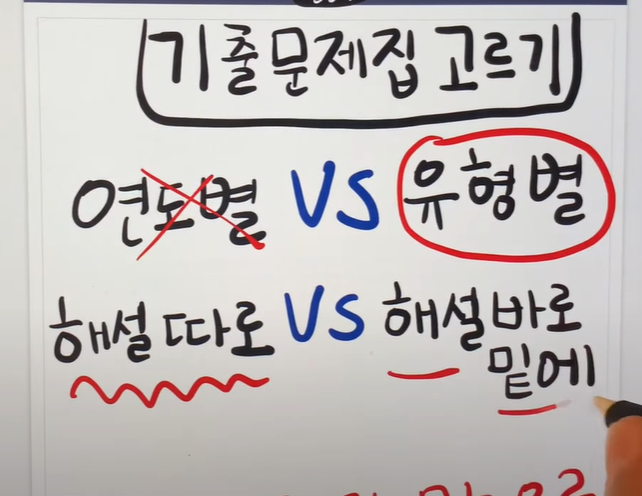 기출문제집 고르기
연도별 VS 유형별
해설따로 VS 해설바로
밑에